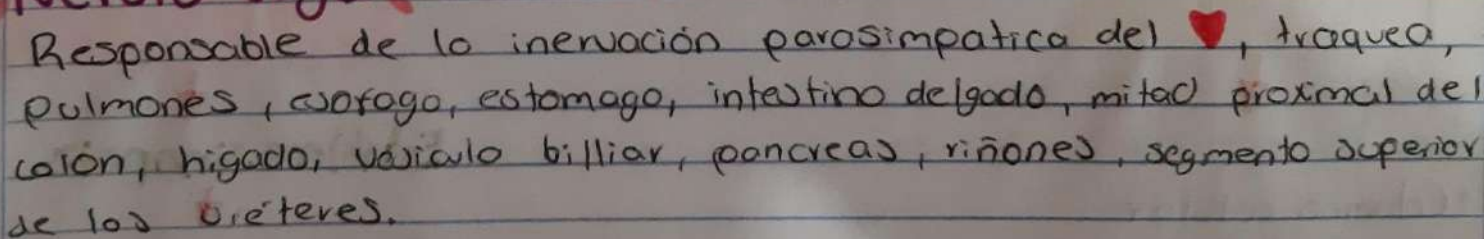 Responsable de la inervación parasimpatica del ♥, traquea,
pulmones, esofago, estomago, intestino delgado, mitad proximal del
colón, higado, vesicula billiar, pancreas, riñones, segmento superior
de los uréteres.